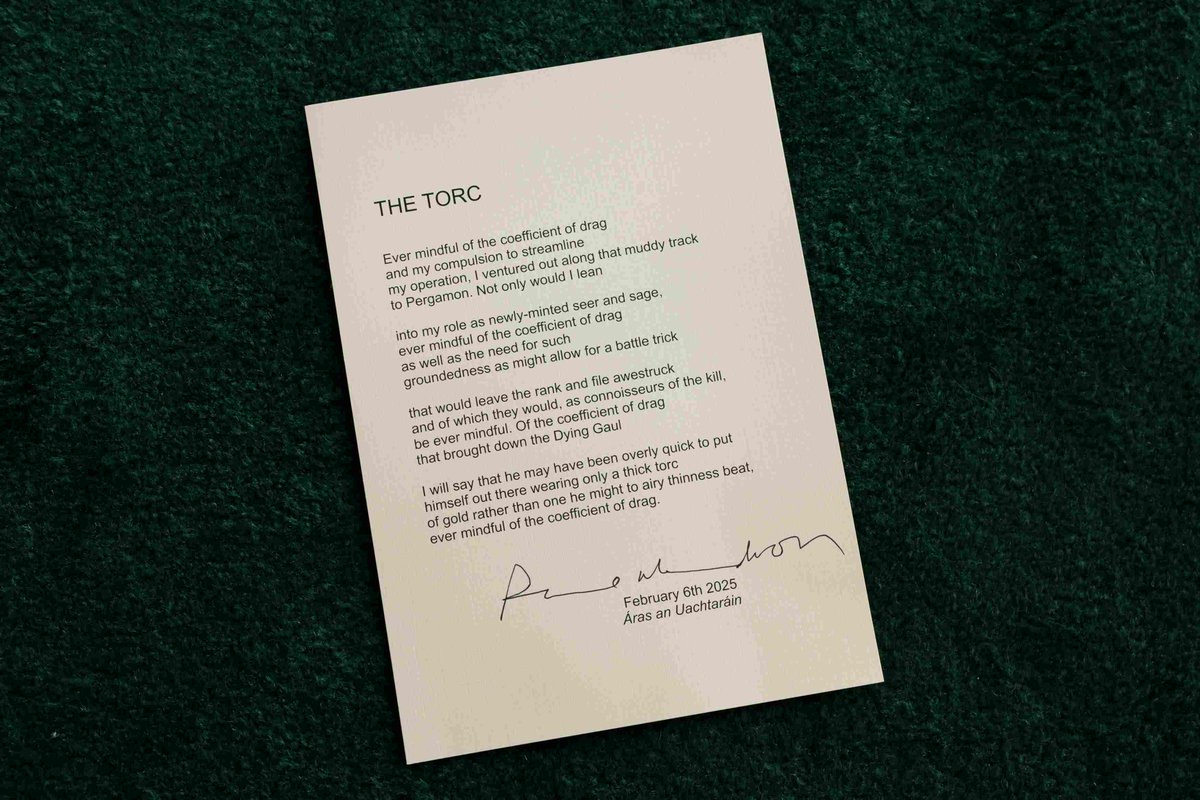 THE TORC
Ever mindful of the coefficient of drag
and my compulsion to streamline
my operation, I ventured out along that muddy track
to Pergamon. Not only would I lean
into my role as newly-minted seer and sage,
ever mindful of the coefficient of drag
as well as the need for such
groundedness as might allow for a battle trick
that would leave the rank and file awestruck
and of which they would, as connoisseurs of the kill,
be ever mindful. Of the coefficient of drag
that brought down the Dying Gaul
I will say that he may have been overly quick to put
himself out there wearing only a thick torc
of gold rather than one he might to airy thinness beat,
ever mindful of the coefficient of drag.
February 6th 2025
Áras an Uachtaráin